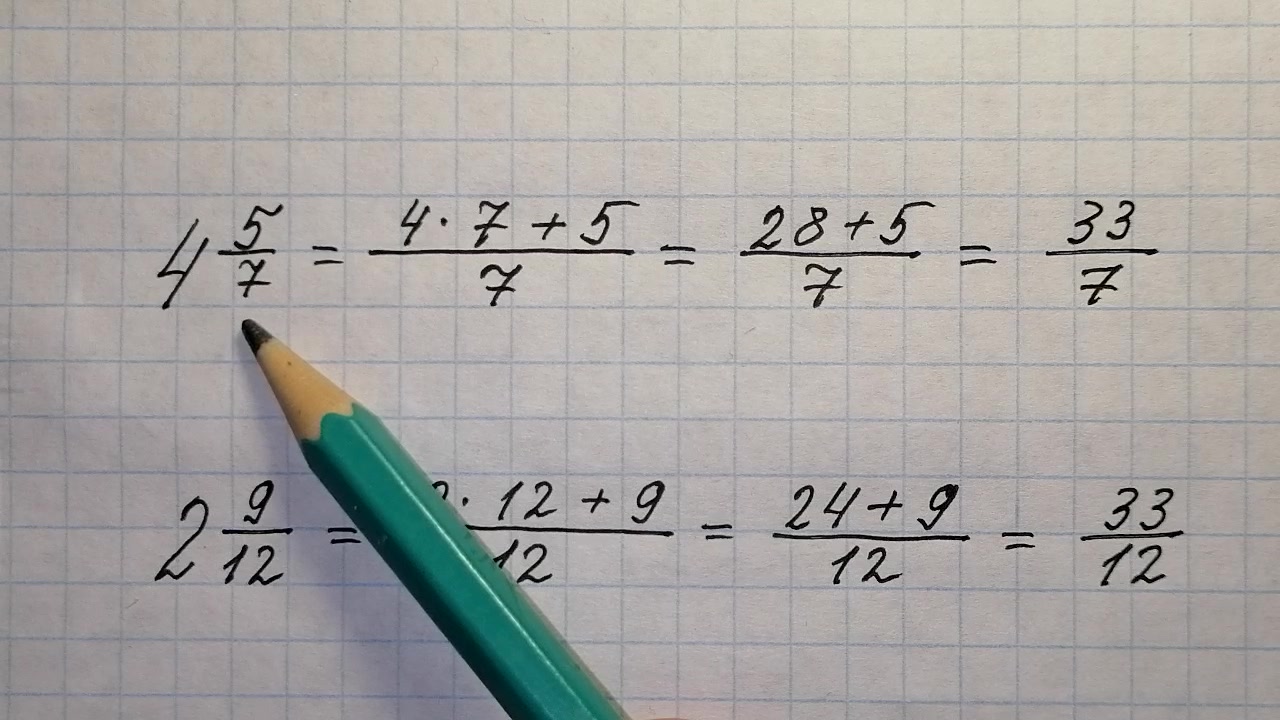 4 5/7 = (4 · 7 + 5)/7 = (28 + 5)/7 = 33/7
2 9/12 = (2 · 12 + 9)/12 = (24 + 9)/12 = 33/12